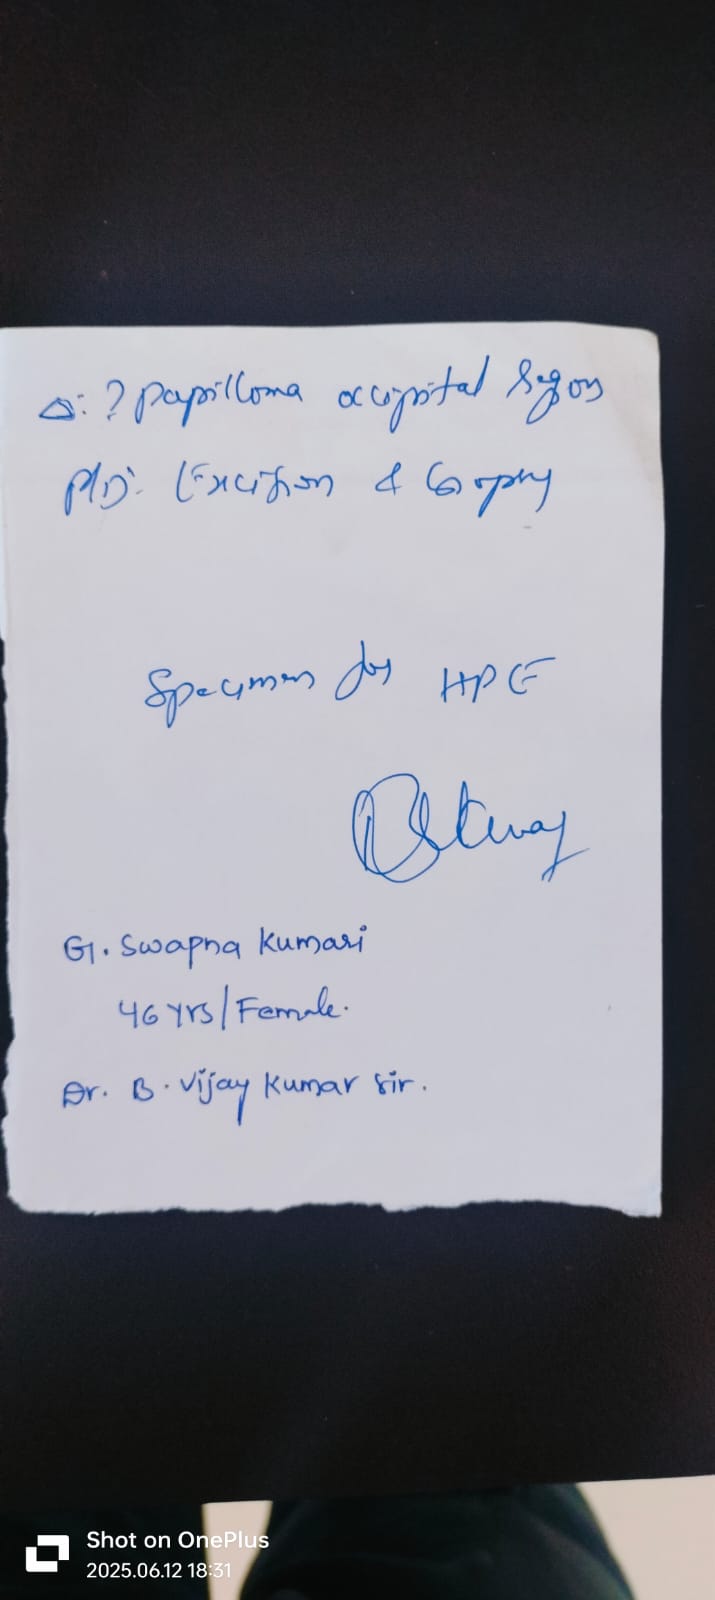 Δ: ? Papilloma occipital region
P/D: Excision & Biopsy
Specimen for HPE
G. Swapna Kumari
46 yrs/Female.
Dr. B. Vijay Kumar Sir.
Shot on OnePlus
2025.06.12 18:31